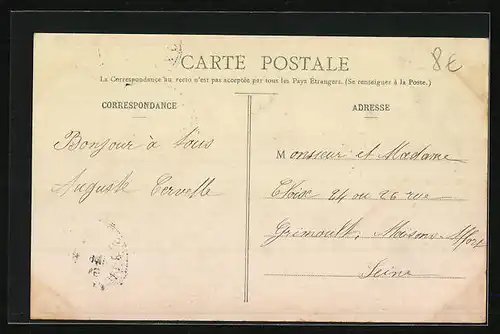 CARTE POSTALE
8€
La Correspondance au recto n'est pas acceptée par tous les Pays Étrangers. (Se renseigner à la Poste.)
CORRESPONDANCE
Bonjour à tous
Auguste
ADRESSE
Monsieur et Madame
24 ou 26 rue
Seine